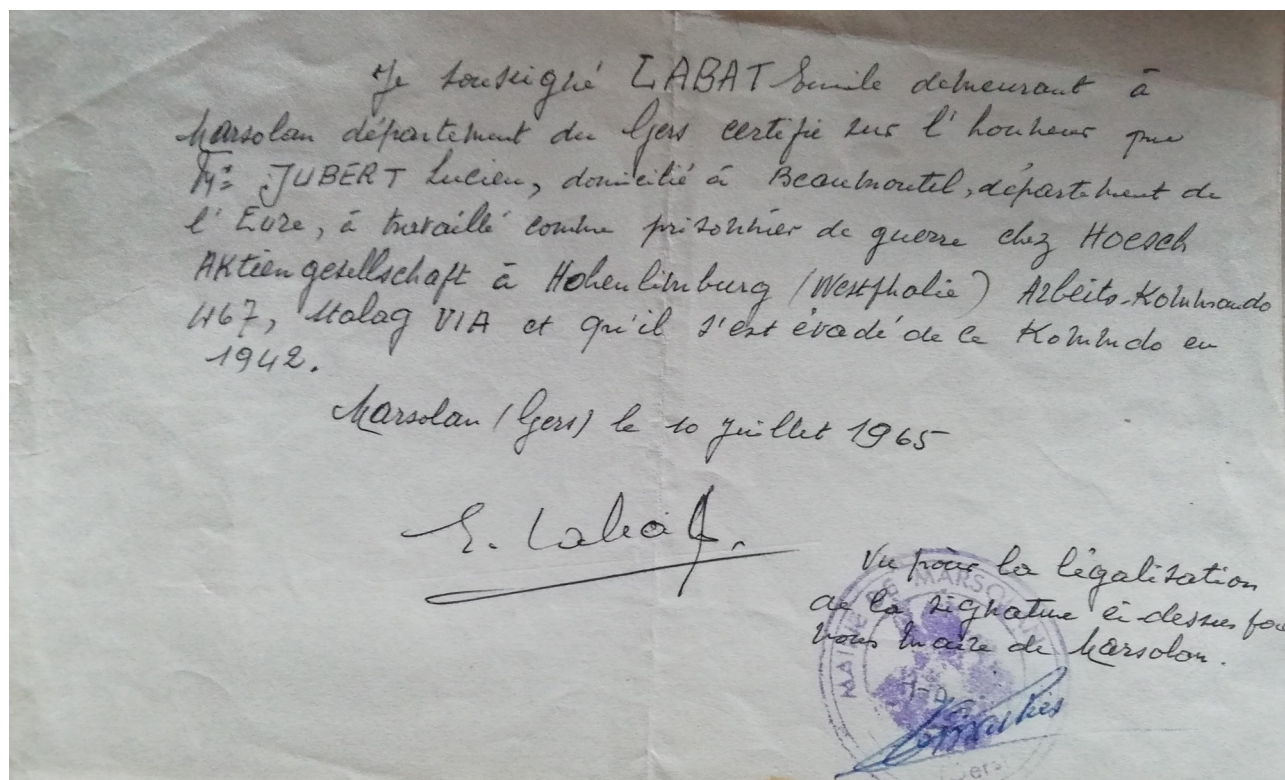 Je soussigné LABAT Emile demeurant à
Marsolan département du Gers certifie sur l'honneur que
Mr JUBERT Lucien, domicilié à Beaumontel, département de
l'Eure, à travaillé comme prisonnier de guerre chez HOESCH
AKtiengesellschaft à Hohenlimburg (Westphalie) Arbeits-Kommando
467, Stalag VIA et qu'il s'est évadé de ce Kommdo en
1942.
Marsolan (Gers) le 10 juillet 1965
E. Labat.
Vu pour la légalisation
de la signature ci-dessus par
nous maire de Marsolan.
MAIRIE DE MARSOLAN
Gers